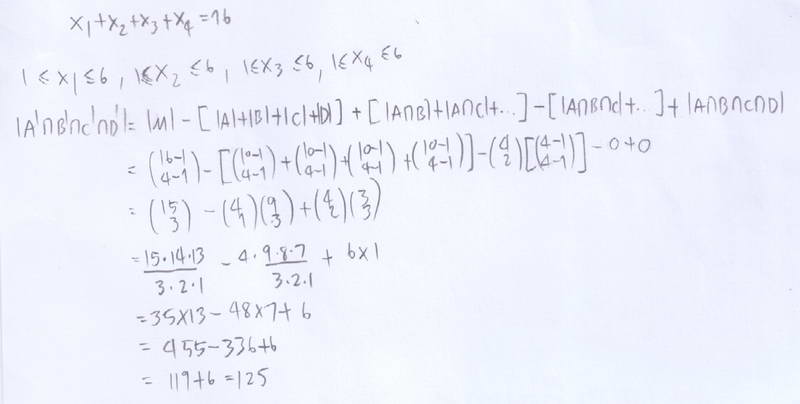 x₁+x₂+x₃+x₄=16
1≤x₁≤6, 1≤x₂≤6, 1≤x₃≤6, 1≤x₄≤6
|A'∩B'∩C'∩D'|= |M| - [|A|+|B|+|C|+|D|] + [|A∩B|+|A∩C|+...] - [|A∩B∩C|+...] + |A∩B∩C∩D|
= (16-1 4-1) - [(10-1 4-1)+(10-1 4-1)+(10-1 4-1)+(10-1 4-1)] - (4 2)[(4-1 4-1)] - 0+0
= (15 3) - (4 1)(9 3)+(4 2)(3 3)
= 15·14·13/3·2·1 - 4·9·8·7/3·2·1 + 6×1
=35×13-48×7+6
= 455-336+6
= 119+6=125